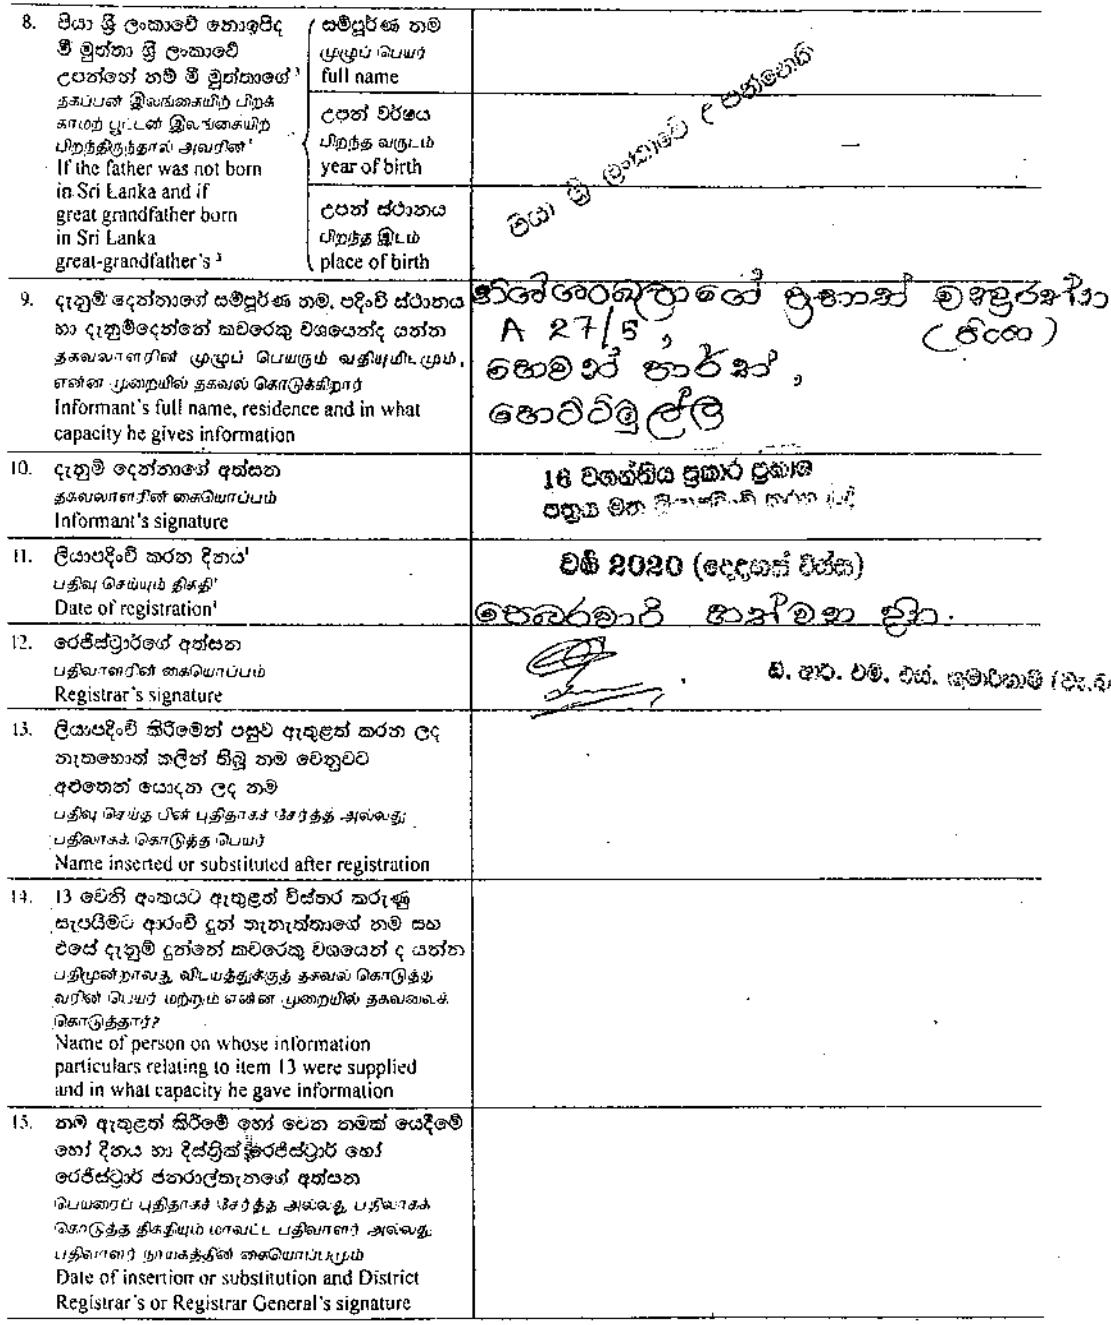 8. පියා ශ්‍රී ලංකාවේ නොඉපිද
මී මුත්තා ශ්‍රී ලංකාවේ
උපන්නේ නම් මී මුත්තාගේ³
தகப்பன் இலங்கையிற் பிறக்
காமற் பூட்டன் இலங்கையிற்
பிறந்திருந்தால் அவரின்
If the father was not born
in Sri Lanka and if
great grandfather born
in Sri Lanka
great-grandfather's ³
සම්පූර්ණ නම
முழுப் பெயர்
full name
උපන් වර්ෂය
பிறந்த வருடம்
year of birth
උපන් ස්ථානය
பிறந்த இடம்
place of birth
පියා ශ්‍රී ලංකාවේ උපන්නෙකි
9. දැනුම් දෙන්නාගේ සම්පූර්ණ නම, පදිංචි ස්ථානය
හා දැනුම්දෙන්නේ කවරෙකු වශයෙන්ද යන්න
தகவலாளரின் முழுப் பெயரும் வதியுமிடமும்,
என்ன முறையில் தகவல் கொடுக்கிறார்
Informant's full name, residence and in what
capacity he gives information
ප්‍රභාත් චතුරංග
A 27/5, (පියා)
හෙමන් පාර්ක්,
හොටටමුල්ල
10. දැනුම් දෙන්නාගේ අත්සන
தகவலாளரின் கையொப்பம்
Informant's signature
16 වගන්තිය ප්‍රකාර ප්‍රකාශ
පත්‍රය මත
11. ලියාපදිංචි කරන දිනය¹
பதிவு செய்யும் திகதி¹
Date of registration¹
වර්ෂ 2020 (දෙදහස් විස්ස)
පෙබරවාරි හත්වන දින.
12. රෙජිස්ට්‍රාර්ගේ අත්සන
பதிவாளரின் கையொப்பம்
Registrar's signature
ඩී. ආර්. එම්. එස්. කුමාරිහාමි
13. ලියාපදිංචි කිරීමෙන් පසුව ඇතුළත් කරන ලද
නැතහොත් කලින් තිබූ නම වෙනුවට
අළුතෙන් යොදන ලද නම
பதிவு செய்த பின் புதிதாகச் சேர்த்த அல்லது
பதிலாகக் கொடுத்த பெயர்
Name inserted or substituted after registration
14. 13 වෙනි අංකයට ඇතුළත් විස්තර කරුණු
සැපයීමට ආරංචි දුන් තැනැත්තාගේ නම සහ
එසේ දැනුම් දුන්නේ කවරෙකු වශයෙන් ද යන්න
பதிமூன்றாவது விடயத்துக்குத் தகவல் கொடுத்த
வரின் பெயர் மற்றும் என்ன முறையில் தகவலைக்
கொடுத்தார்?
Name of person on whose information
particulars relating to item 13 were supplied
and in what capacity he gave information
15. නම ඇතුළත් කිරීමේ හෝ වෙන නමක් යෙදීමේ
හෝ දිනය හා දිස්ත්‍රික් රෙජිස්ට්‍රාර් හෝ
රෙජිස්ට්‍රාර් ජනරාල්තැනගේ අත්සන
பெயரைப் புதிதாகச் சேர்த்த அல்லது பதிலாகக்
கொடுத்த திகதியும் மாவட்ட பதிவாளர் அல்லது
பதிவாளர் நாயகத்தின் கையொப்பமும்
Date of insertion or substitution and District
Registrar's or Registrar General's signature